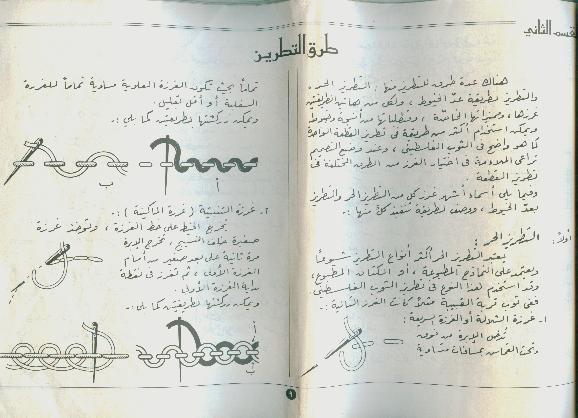 القسم الثاني
طرق التطريز
هنالك عدة طرق للتطريز منها: التطريز الحر،
والتطريز بطريقة عدّ الخيوط، ولكل من هاتين الطريقتين
غرزها، وميزاتها الخاصة، ومتطلباتها من أنسجة وخيوط
ويمكن استخدام أكثر من طريقة في تطريز القطعة الواحدة
كما هو واضح في الثوب الفلسطيني، وعند وضع التصميم
تراعى الملاءمة في اختيار الغرز من الطرق المختلفة في
تطريز القطعة.
وفيما يلي أسماء أشهر غرز كل من التطريز الحر والتطريز
بعدّ الخيوط، ووصف لطريقة تنفيذ كلّ منها:-
أولاً: التطريز الحر:
يعتبر التطريز الحر أكثر أنواع التطريز شيوعاً
ويعتمد على النماذج المطبوعة، أو الكتان المطبوع،
وقد استخدم هذا النوع في تطريز الثوب الفلسطيني
ففي ثوب قرية القبيبة مثلاً كانت الغرز التالية:-
١- غرزة الشلالة أو الغرزة السريعة:
تُعرض الإبرة من فوق
وتحت القماش بمسافات متساوية
تماماً بحيث تكون الغرزة العلوية مساوية تماماً للغرزة
السفلية أو أقل بقليل.
ويمكن زركشتها بطريقتين كما يلي:-
أ
ب
٢- غرزة التثنية (غرزة الماكينة):-
يخرج الخيط على خط الغرزة، وتؤخذ غرزة
صغيرة خلف النسيج، تخرج الإبرة
مرة ثانية على بعد صغير من أمام
الغرزة الأولى، ثم تغرز في نقطة
بداية الغرزة الأولى.
ويمكن زركشتها بطريقتين كما يلي:-
أ
ب
٩